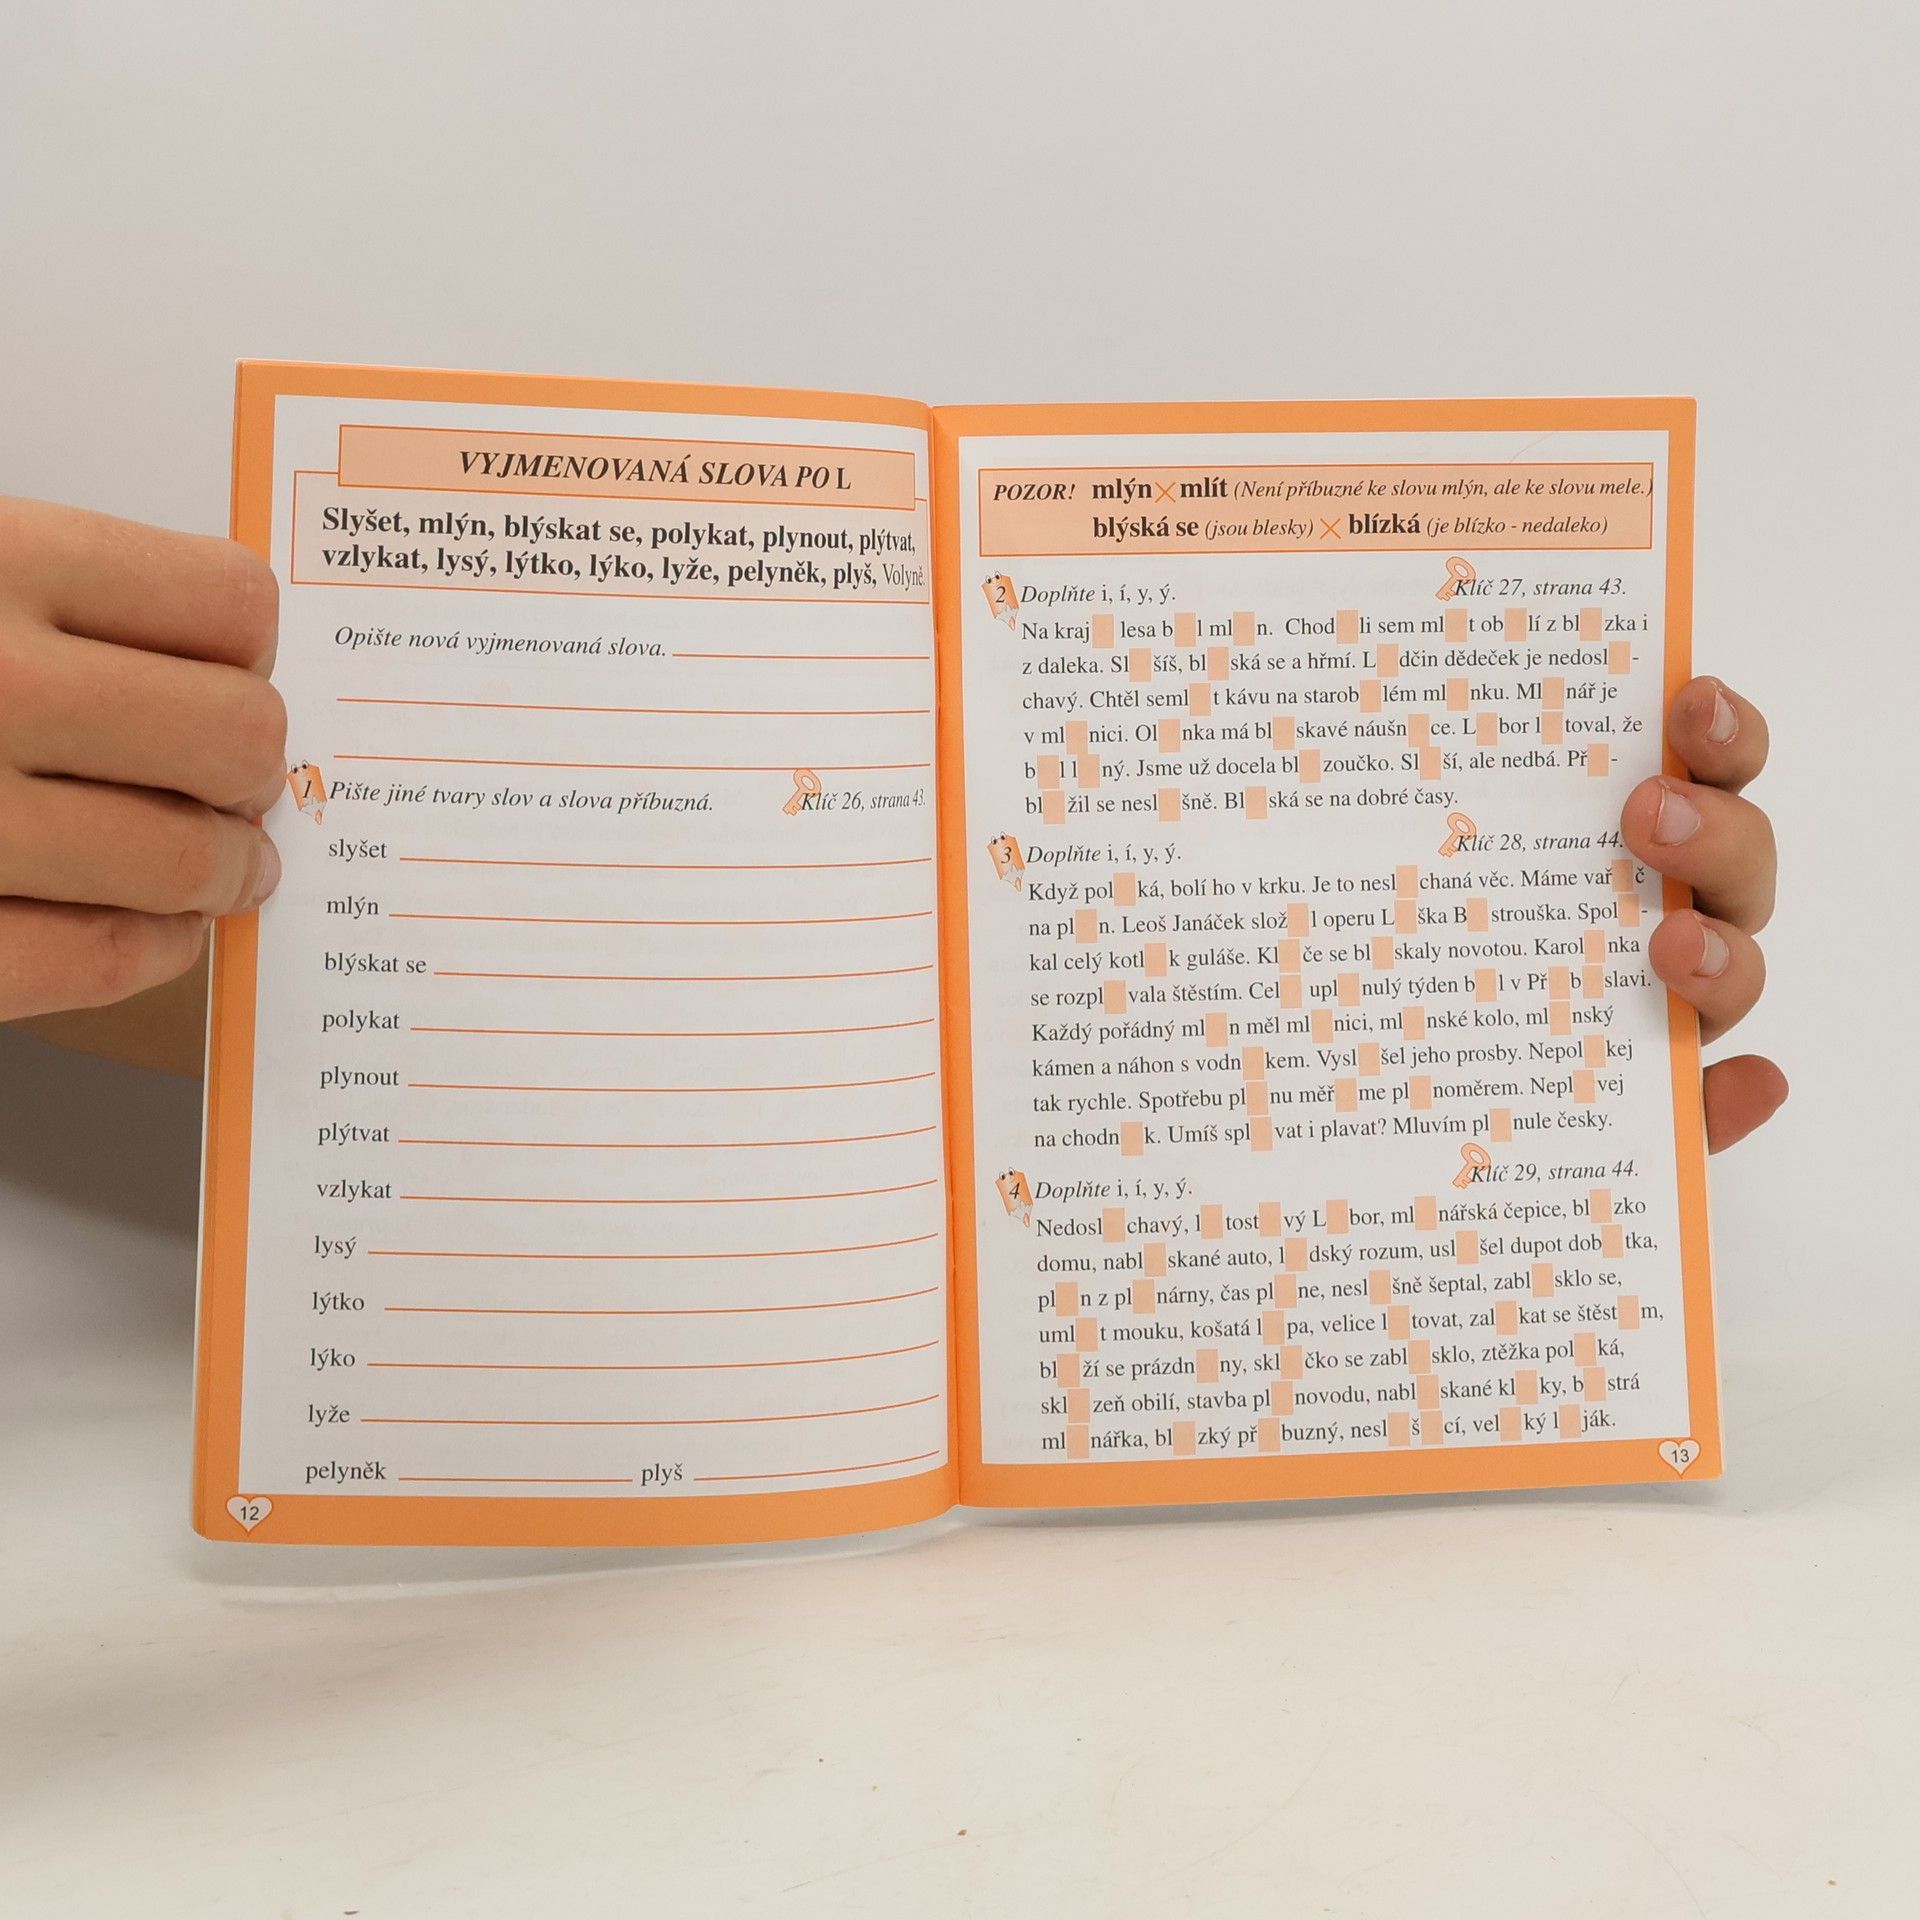 VYJMENOVANÁ SLOVA PO L
Slyšet, mlýn, blýskat se, polykat, plynout, plýtvat,
vzlykat, lysý, lýtko, lýko, lyže, pelyněk, plyš, Volyně.
Opište nová vyjmenovaná slova.
1 Pište jiné tvary slov a slova příbuzná. Klíč 26, strana 43.
slyšet
mlýn
blýskat se
polykat
plynout
plýtvat
vzlykat
lysý
lýtko
lýko
lyže
pelyněk plyš
12
POZOR! mlýn × mlít (Není příbuzné ke slovu mlýn, ale ke slovu mele.)
blýská se (jsou blesky) × blízká (je blízko - nedaleko)
2 Doplňte i, í, y, ý. Klíč 27, strana 43.
Na kraj lesa b l ml n. Chod li sem ml t ob lí z bl zka i
z daleka. Sl šíš, bl ská se a hřmí. L dčin dědeček je nedosl -
chavý. Chtěl seml t kávu na starob lém ml nku. Ml nář je
v ml nici. Ol nka má bl skavé náušn ce. L bor l toval, že
b l l ný. Jsme už docela bl zoučko. Sl ší, ale nedbá. Př -
bl žil se nesl šně. Bl ská se na dobré časy.
3 Doplňte i, í, y, ý. Klíč 28, strana 44.
Když pol ká, bolí ho v krku. Je to nesl chaná věc. Máme vař č
na pl n. Leoš Janáček slož l operu L ška B strouška. Spol -
kal celý kotl k guláše. Kl če se bl skaly novotou. Karol nka
se rozpl vala štěstím. Cel upl nulý týden b l v Př b slavi.
Každý pořádný ml n měl ml nici, ml nské kolo, ml nský
kámen a náhon s vodn kem. Vysl šel jeho prosby. Nepol kej
tak rychle. Spotřebu pl nu měř me pl noměrem. Nepl vej
na chodn k. Umíš spl vat i plavat? Mluvím pl nule česky.
4 Doplňte i, í, y, ý. Klíč 29, strana 44.
Nedosl chavý, l tost vý L bor, ml nářská čepice, bl zko
domu, nabl skané auto, l dský rozum, usl šel dupot dob tka,
pl n z pl nárny, čas pl ne, nesl šně šeptal, zabl sklo se,
uml t mouku, košatá l pa, velice l tovat, zal kat se štěst m,
bl ží se prázdn ny, skl čko se zabl sklo, ztěžka pol ká,
skl zeň obilí, stavba pl novodu, nabl skané kl ky, b strá
ml nářka, bl zký př buzný, nesl š cí, vel ký l ják.
13